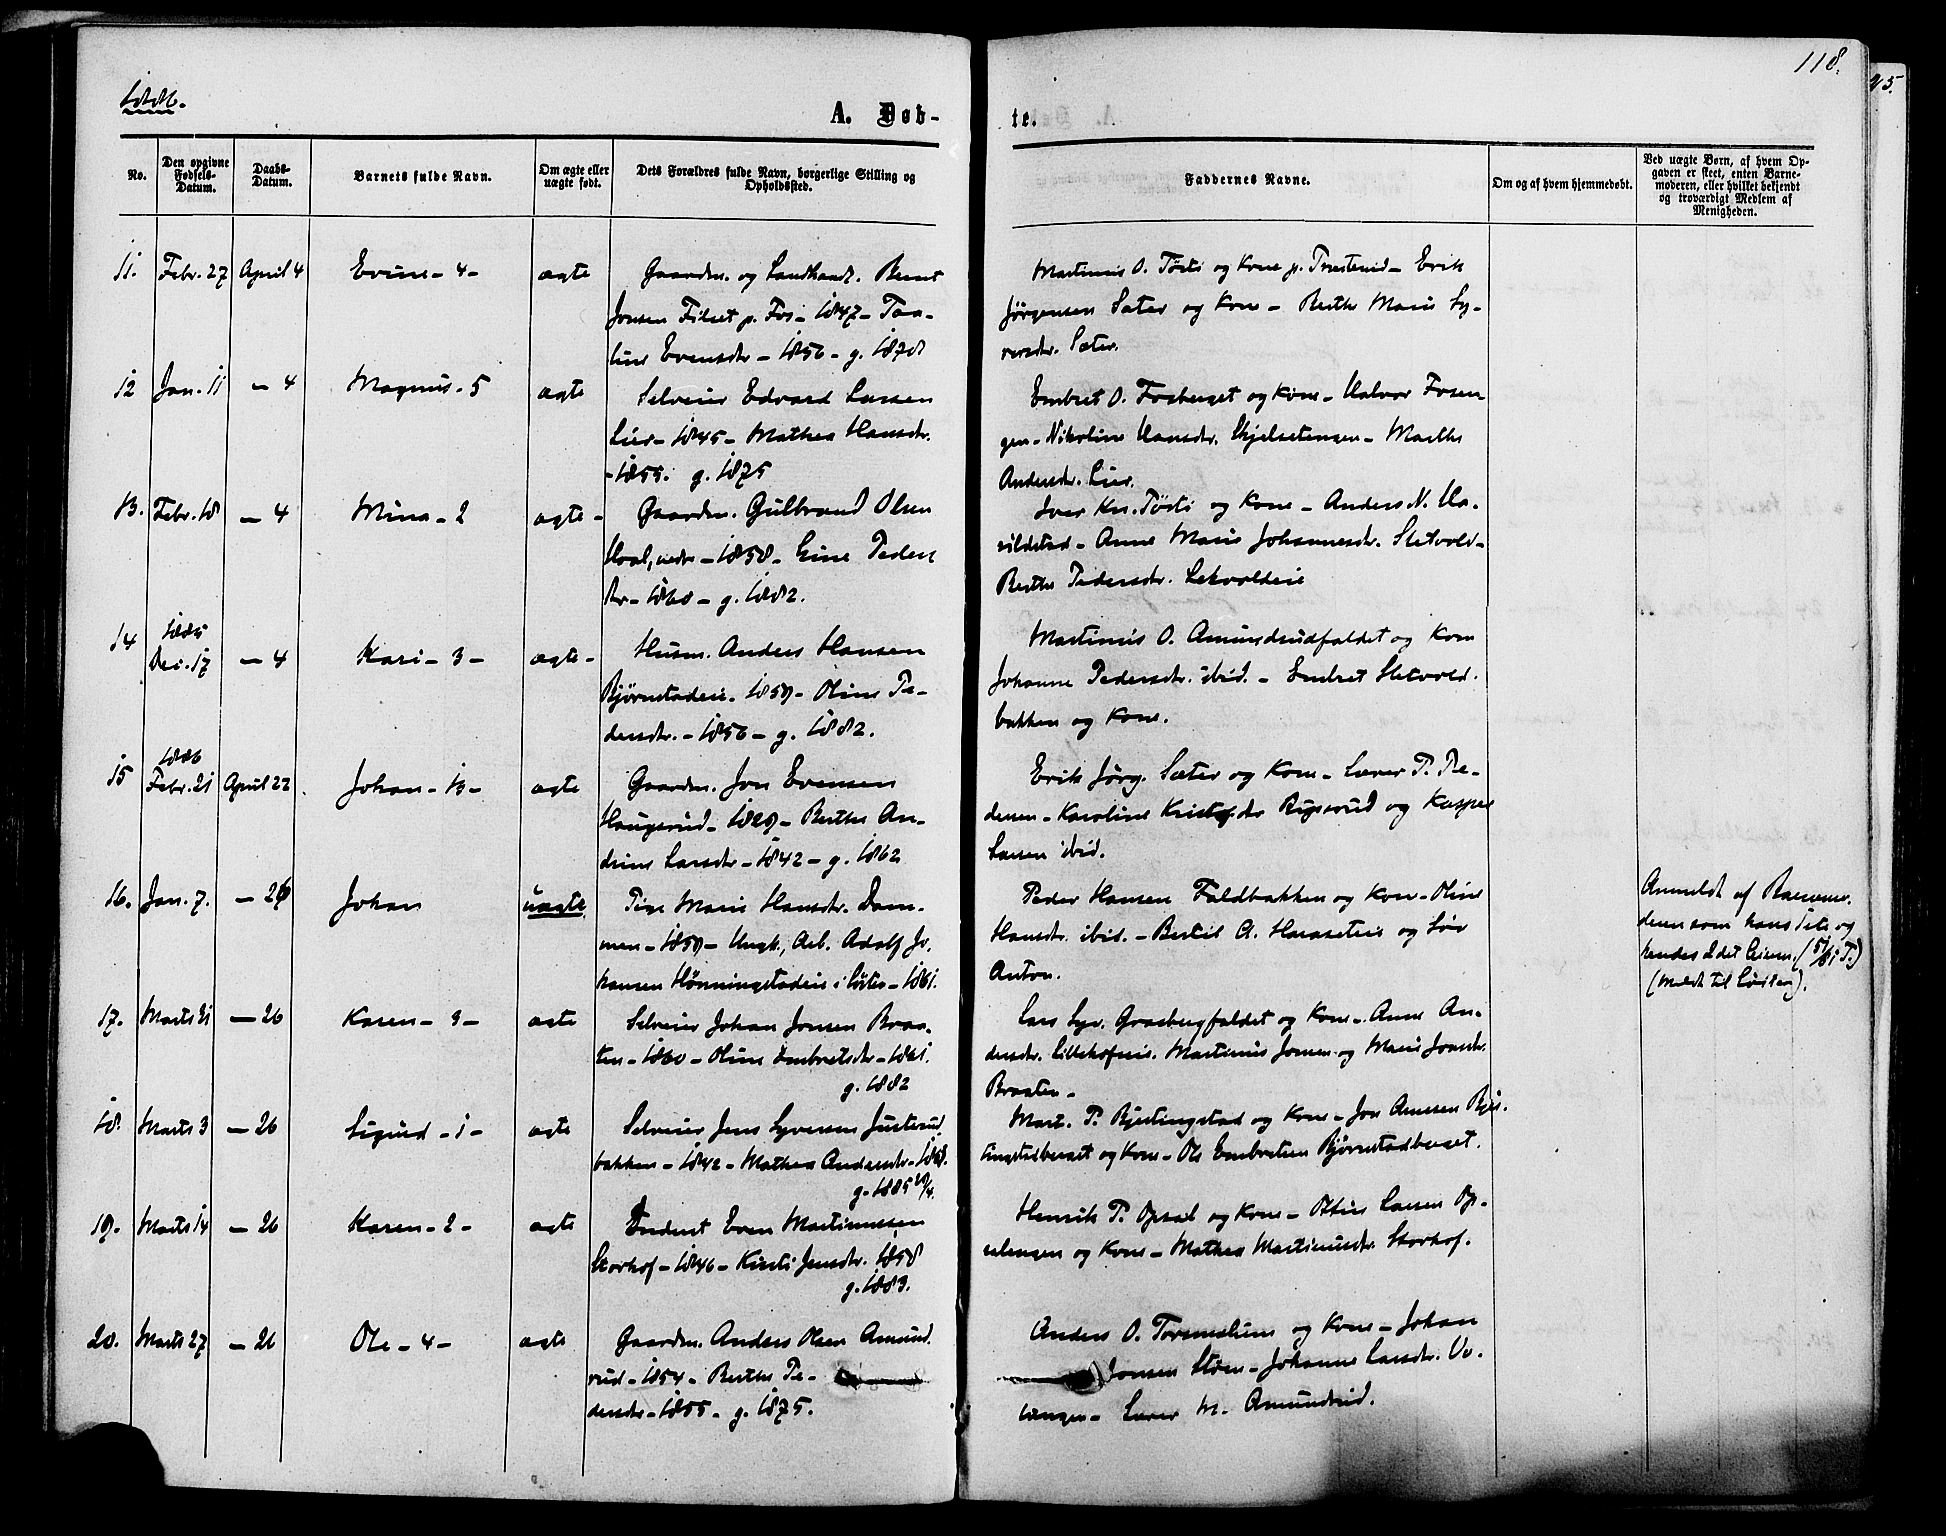 118.
25.
1886.
A. Døb-
te.
No.
Den opgivne Fødsels-Datum.
Daabs-Datum.
Barnets fulde Navn.
Om ægte eller uægte født.
Dets Forældres fulde Navn, borgerlige Stilling og Opholdssted.
Faddernes Navne.
Om og af hvem hjemmedøbt.
Ved uægte Børn, af hvem Opgaven er skeet, enten Barnemoderen, eller hvilket bekjendt og troværdigt Medlem af Menigheden.
11. Febr. 27 April 4 Evine - 4 - ægte Gaardm. og Landhandl. Bernt
Jonsen Filset p. Fos - 1847 - Pau-
line Evensdtr - 1856 - g. 1878
Martinus O. Tøsti og Kone p. - Erik
Jørgensen Sæter og Kone - Berthe Marie Sy-
versdtr. Sæter.
12 Jan. 11 - 4 Magnus - 5 ægte Selveier Edvard Larsen
Lier - 1845 - Mathea Hansdtr.
- 1855. g. 1875
Embret O. Fosberget og Kone - Halvor Fosen-
gen - Nikoline Hansdtr. Skjelsetengen - Marthe
Andersdtr. Lier.
13. Febr. 18 - 4 Mina - 2 ægte - Gaardm. Gulbrand Olsen
Hoel, nedre - 1858 - Eline Peders
dtr - 1860 - g. 1882.
Iver Kr. Tøsti og Kone - Anders N. Ha-
vildstad - Anne Marie Johannesdtr. Sletvold -
Berthe Pedersdtr. Lekvoldeie
14 1885 Dec. 17 - 4 Kari - 3 - ægte - Husm. Anders Hansen
Bjørnstadeie - 1859 - Oline Pe-
dersdtr. - 1856 - g. 1882.
Martinus O. Amundsrudfaldet og Kone
Johanne Pedersdtr. ibid. - Embret Sletvold-
bakken og Kone.
15 1886 Febr. 21 April 22 Johan - 13 - ægte Gaardm. Jon Evensen
Haugsrud - 1829 - Berthe An-
drine Larsdtr - 1842 - g. 1862
Erik Jørg. Sæter og Kone - Lærer P. Pe-
dersen - Karoline Kristofdtr Rigsrud og Kasper
Larsen ibid.
16. Jan. 7. - 26 Johan uægte Pige Marie Hansdtr. Dam-
men - 1859 - Ungk., Arb. Adolf Jo-
hansen Hønningstadeie i Løiten - 1861.
Peder Hansen Faldbakken og Kone - Oline
Hansdtr. ibid. - Bertil A. Haraseteie og Søn
Anton.
Anmeldt af Barnemo-
deren som hans 1ste og
hendes 2det Leierm.
(meldt til Løiten).
17. Marts 21 - 26 Karen - 3 - ægte Selveier Johan Jonsen Braa-
ten - 1860 - Oline Embretsdtr - 1861.
g. 1882
Lars Syv. Grasbergfaldet og Kone - Anne An-
dersdtr. Lillehofeie. Martinus Jonsen og Marie Jonsdtr.
Braaten -
18. Marts 3 - 26 Sigurd - 1 - ægte Selveier Jens Syversen Justerud
bakken - 1842 - Mathea Andersdtr -
g. 1885
Mart. P. Bjertingstad og Kone - Jon Arnesen Bjer-
tingstadberget og Kone - Ole Embretsen Bjørnstadberget.
19. Marts 14 - 26 Karen - 2 - ægte Inderst Even Martinussen
Storhof - 1846 - Kirsti Jensdtr. 1858
g. 1883.
Henrik P. Opsal og Kone - Petter Larsen Op-
salengen og Kone - Mathea Martinusdtr. Storhof.
20. Marts 27 - 26 Ole - 4 - ægte Gaardm. Anders Olsen Amund-
rud - 1854 - Berthe Pe-
dersdtr - 1855 - g. 1875.
Anders O. og Kone - Johan
Jonsen Støen - Johanne Larsdtr.
Lærer M. Amundrud.